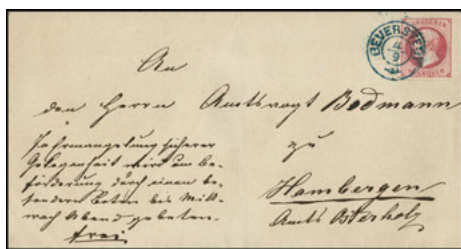 BEVERSTEDT
4
9
HANNOVER
An
den Herrn Amtsvogt Bodmann
zu
Hambergen
Amts Osterholz
In Ermangelung sicherer
Gelegenheit wird um Be-
förderung durch einen be-
sondern Boten bis Mitt-
woch Abend gebeten.
frei